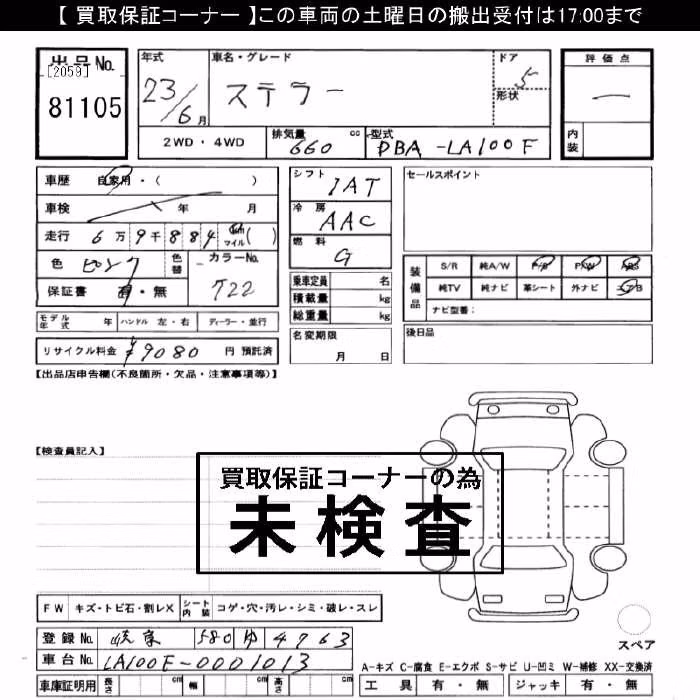 【 買取保証コーナー 】この車両の土曜日の搬出受付は17:00まで
出品No.
[2059]
81105
年式
23/6月
車名・グレード
ステラ
ドア
5
形状
2WD・4WD
排気量
660 cc
型式
DBA-LA100F
評価点
内装
車歴
自家用・( )
車検
年 月
走行
6万9千884 km マイル( )
色
ピンク
色替
カラーNo.
T22
保証書
有・無
モデル年式
年
ハンドル 左・右
ディーラー・並行
リサイクル料金
¥9080 円 預託済
シフト
IAT
冷房
AAC
燃料
G
乗車定員 名
積載量 kg
総重量 kg
名変期限
月 日
セールスポイント
装備品
S/R
純A/W
P/S
P/W
ABS
純TV
純ナビ
革シート
外ナビ
エアB
ナビ型番:
後日品
【出品店申告欄(不良箇所・欠品・注意事項等)】
【検査員記入】
買取保証コーナーの為
未検査
FW
キズ・トビ石・割レX
シート内装
コゲ・穴・汚レ・シミ・破レ・スレ
登録No.
岐阜 580 ゆ 4763
車台No.
LA100F-0001013
車庫証明用
長さ cm
幅 cm
高さ cm
スペア
A-キズ C-腐食 E-エクボ S-サビ U-凹ミ W-補修 XX-交換済
工具
有・無
ジャッキ
有・無